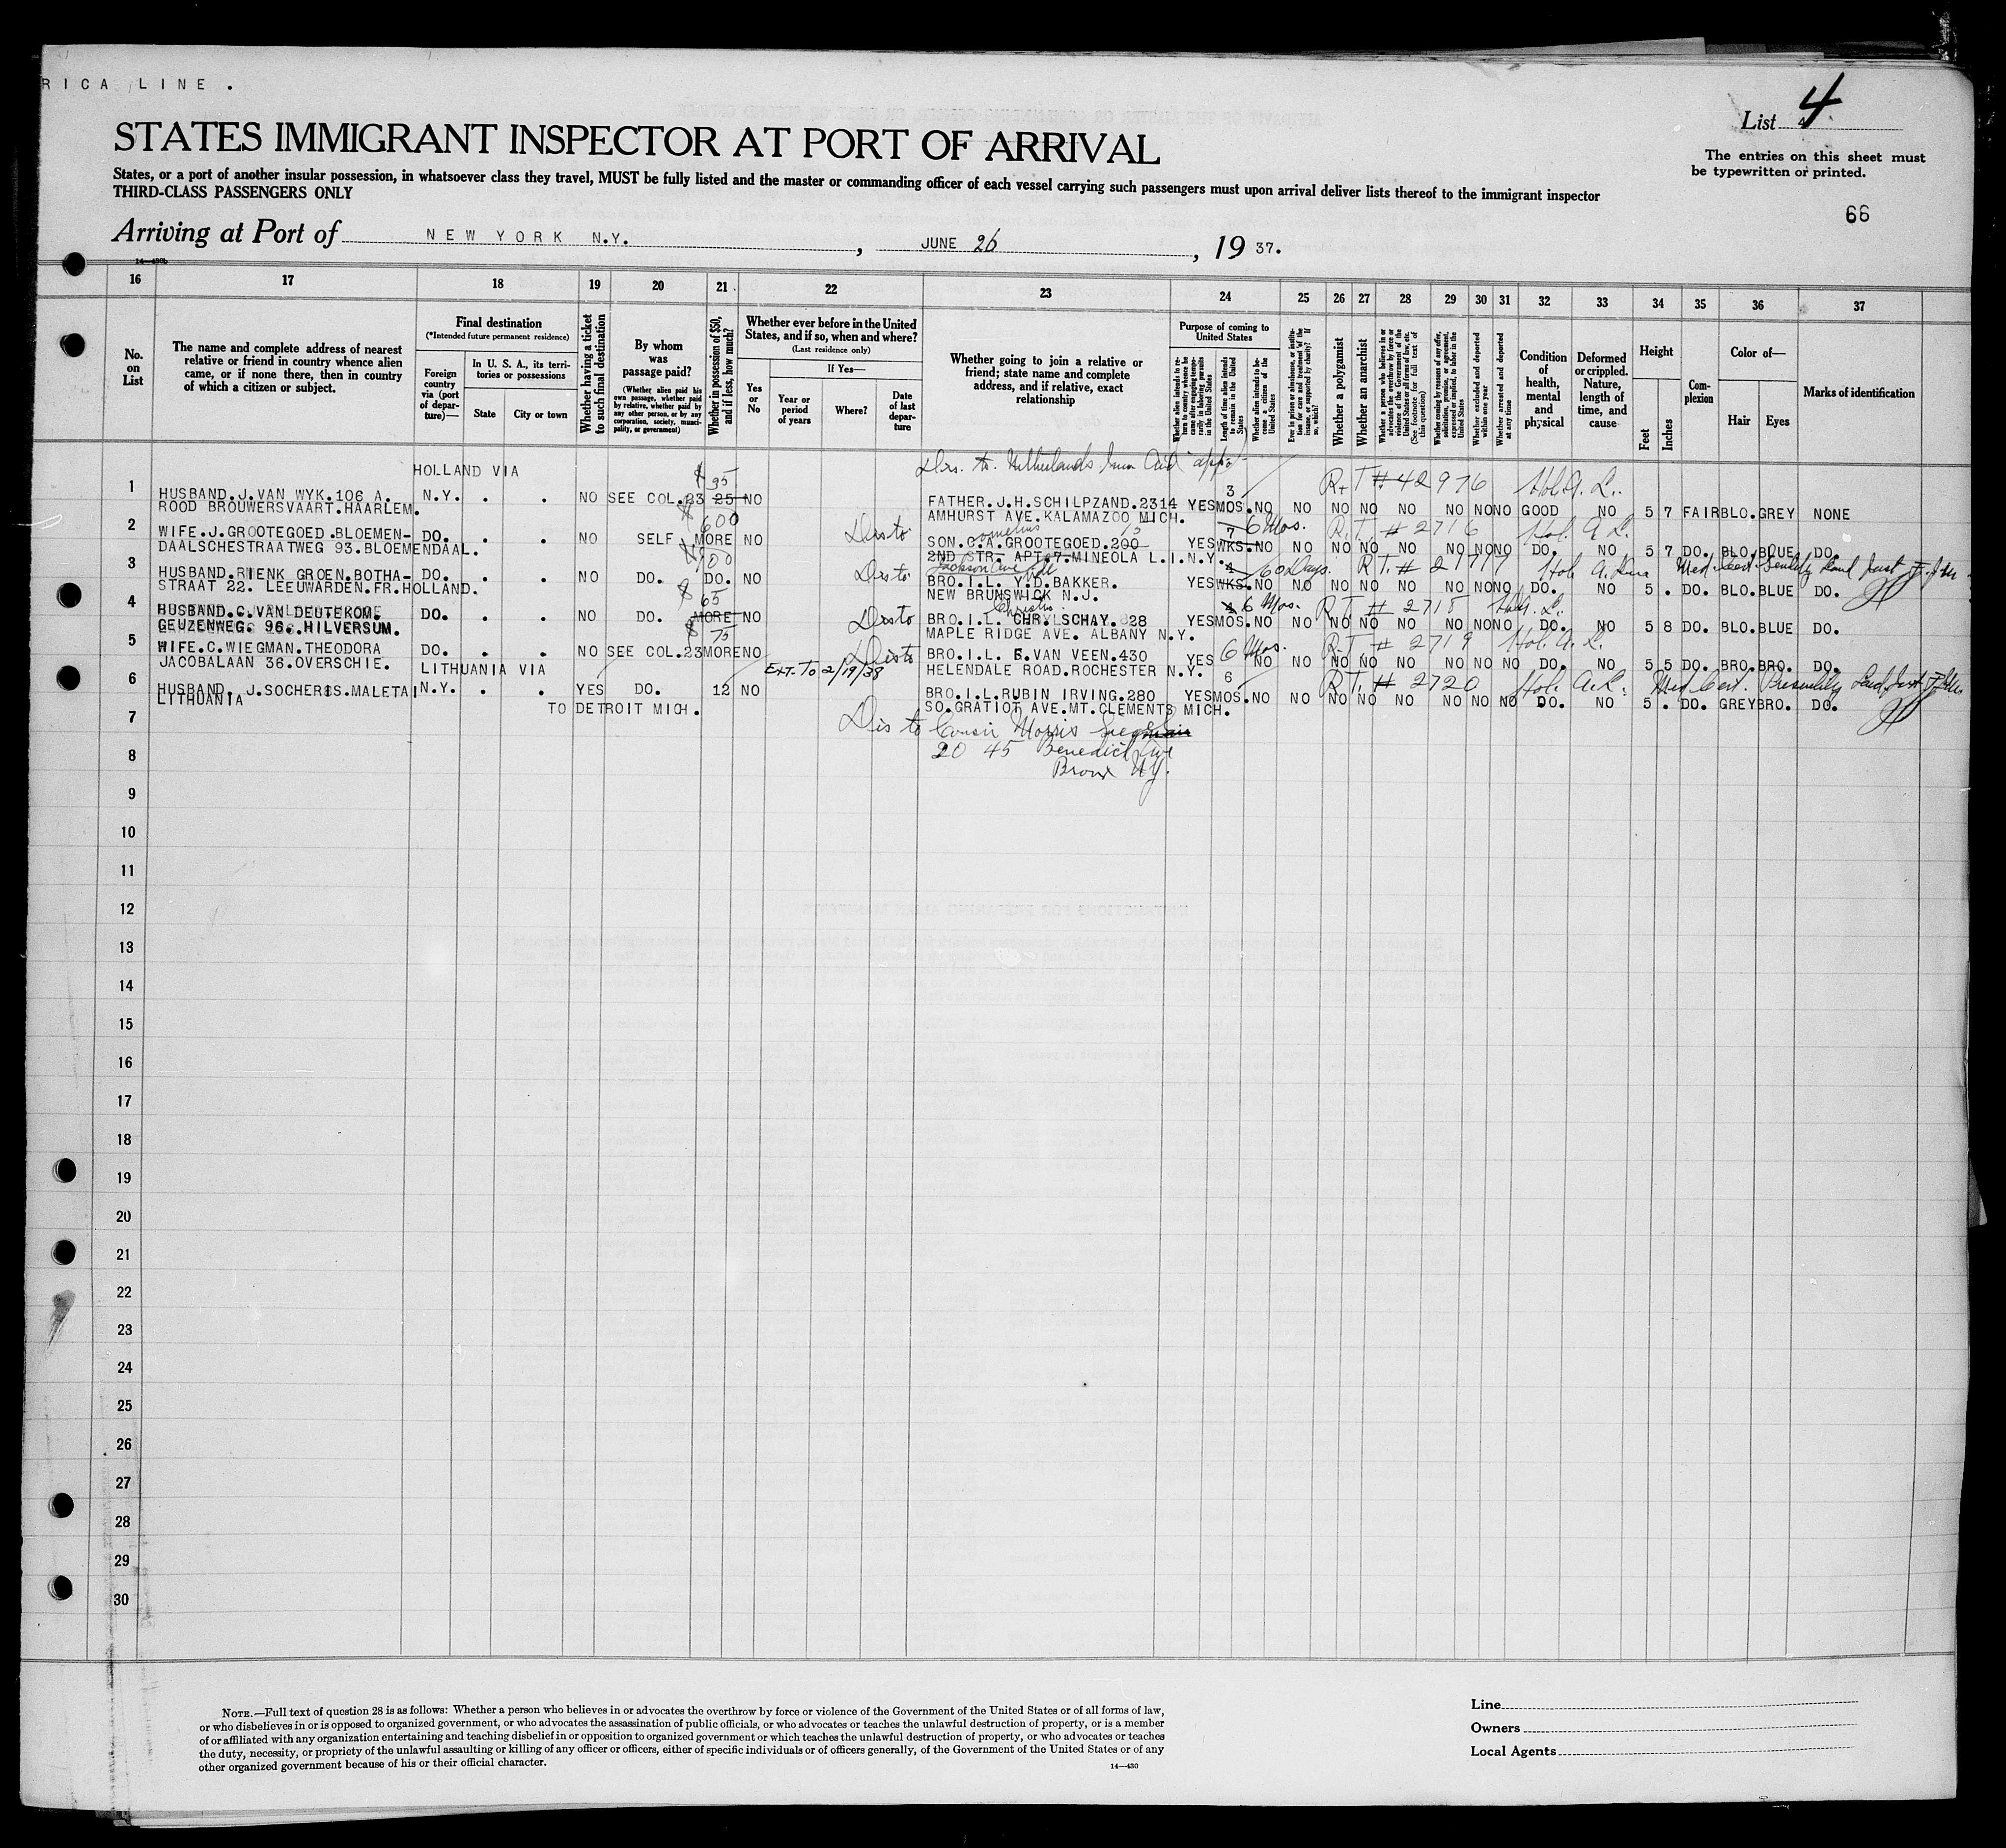 RICA LINE.
List 4
STATES IMMIGRANT INSPECTOR AT PORT OF ARRIVAL
The entries on this sheet must
be typewritten or printed.
States, or a port of another insular possession, in whatsoever class they travel, MUST be fully listed and the master or commanding officer of each vessel carrying such passengers must upon arrival deliver lists thereof to the immigrant inspector
THIRD-CLASS PASSENGERS ONLY
66
Arriving at Port of NEW YORK N.Y., JUNE 26, 1937.
14—430b
16 17 18 19 20 21 22 23 24 25 26 27 28 29 30 31 32 33 34 35 36 37
No. on List
The name and complete address of nearest relative or friend in country whence alien came, or if none there, then in country of which a citizen or subject.
Final destination
(*Intended future permanent residence)
Foreign country via (port of departure)—
In U. S. A., its territories or possessions
State
City or town
Whether having a ticket to such final destination
By whom was passage paid?
(Whether alien paid his own passage, whether paid by relative, whether paid by any other person, or by any corporation, society, municipality, or government)
Whether in possession of $50, and if less, how much?
Whether ever before in the United States, and if so, when and where?
(Last residence only)
Yes or No
If Yes—
Year or period of years
Where?
Date of last departure
Whether going to join a relative or friend; state name and complete address, and if relative, exact relationship
Purpose of coming to United States
Whether alien intends to return to country whence he came after engaging temporarily in laboring pursuits in the United States
Length of time alien intends to remain in the United States
Whether alien intends to become a citizen of the United States
Ever in prison or almshouse, or institution for care and treatment of the insane, or supported by charity? If so, which?
Whether a polygamist
Whether an anarchist
Whether a person who believes in or advocates the overthrow by force or violence of the Government of the United States or all forms of law, etc. (See footnote for full text of this question)
Whether coming by reasons of any offer, solicitation, promise, or agreement, expressed or implied, to labor in the United States
Whether excluded and deported within one year
Whether arrested and deported at any time
Condition of health, mental and physical
Deformed or crippled. Nature, length of time, and cause
Height
Feet
Inches
Complexion
Color of—
Hair
Eyes
Marks of identification
HOLLAND VIA $ 95 Dis. to Netherlands Imm Aid
1 HUSBAND.J.VAN WYK.106 A. N.Y. . . NO SEE COL.23 25 NO FATHER.J.H.SCHILPZAND.2314 YES 3 MOS. NO NO NO NO NO NO NO NO GOOD NO 5 7 FAIR BLO. GREY NONE
R.T #42976 Hol. A. L.
ROOD BROUWERSVAART.HAARLEM. AMHURST AVE.KALAMAZOO MICH.
2 WIFE.J.GROOTEGOED.BLOEMEN- DO. . . NO SELF $ 600 MORE NO Dis to SON.C.A.GROOTEGOED.200 13 YES 7 WKS. 6 Mos. NO NO NO NO NO NO NO NO DO. NO 5 7 DO. BLO. BLUE DO.
Cornelius R.T. #2716 Hol. A L.
DAALSCHESTRAATWEG 93.BLOEMENDAAL. 2ND STR- APT.7.MINEOLA L.I.N.Y.
Jackson Ave
3 HUSBAND.RIENK GROEN.BOTHA- DO. . . NO DO. $ 100 DO. NO Dis to BRO.I.L. Y.D.BAKKER. YES 4 WKS. 60 Days. NO NO NO NO NO NO NO NO DO. NO 5 . DO. BLO. BLUE DO.
R.T. #2717 Hol. A. Line Med. Cert.
STRAAT 22. LEEUWARDEN.FR.HOLLAND. NEW BRUNSWICK N.J.
4 HUSBAND.C.VAN DEUTEKOM. DO. . . NO DO. $ 65 MORE NO Dis to BRO.I.L. CHRY.SCHAY.828 YES 6 Mos. MOS. NO NO NO NO NO NO NO NO DO. NO 5 8 DO. BLO. BLUE DO.
R.T. #2718 Hol. A. L.
GEUZENWEG. 96. HILVERSUM. MAPLE RIDGE AVE. ALBANY N.Y.
5 WIFE.C.WIEGMAN.THEODORA DO. . . NO SEE COL.23 $ 75 MORE NO Dis to BRO.I.L. E.VAN VEEN.430 YES 6 Mos. NO NO NO NO NO NO NO NO DO. NO 5 5 DO. BRO. BRO. DO.
R.T #2719 Hol. A. L.
JACOBALAAN 36.OVERSCHIE. LITHUANIA VIA EXT. TO 2/19/38 HELENDALE ROAD.ROCHESTER N.Y.
6 HUSBAND. J.SOCHERIS.MALETAI N.Y. . . YES DO. 12 NO BRO.I.L.RUBIN IRVING.280 YES 6 MOS. NO NO NO NO NO NO NO NO DO. NO 5 . DO. GREY BRO. DO.
R.T. #2720 Hol. A. L. Med Cert.
LITHUANIA TO DETROIT MICH. SO.GRATIOT AVE.MT.CLEMENTS MICH.
7 Dis to Cousin Morris
8 2045 Benedict Ave
Bronx N.Y.
9
10
11
12
13
14
15
16
17
18
19
20
21
22
23
24
25
26
27
28
29
30
NOTE.—Full text of question 28 is as follows: Whether a person who believes in or advocates the overthrow by force or violence of the Government of the United States or of all forms of law,
or who disbelieves in or is opposed to organized government, or who advocates the assassination of public officials, or who advocates or teaches the unlawful destruction of property, or is a member
of or affiliated with any organization entertaining and teaching disbelief in or opposition to organized government or which teaches the unlawful destruction of property, or who advocates or teaches
the duty, necessity, or propriety of the unlawful assaulting or killing of any officer or officers, either of specific individuals or of officers generally, of the Government of the United States or of any
other organized government because of his or their official character.
14—430
Line
Owners
Local Agents